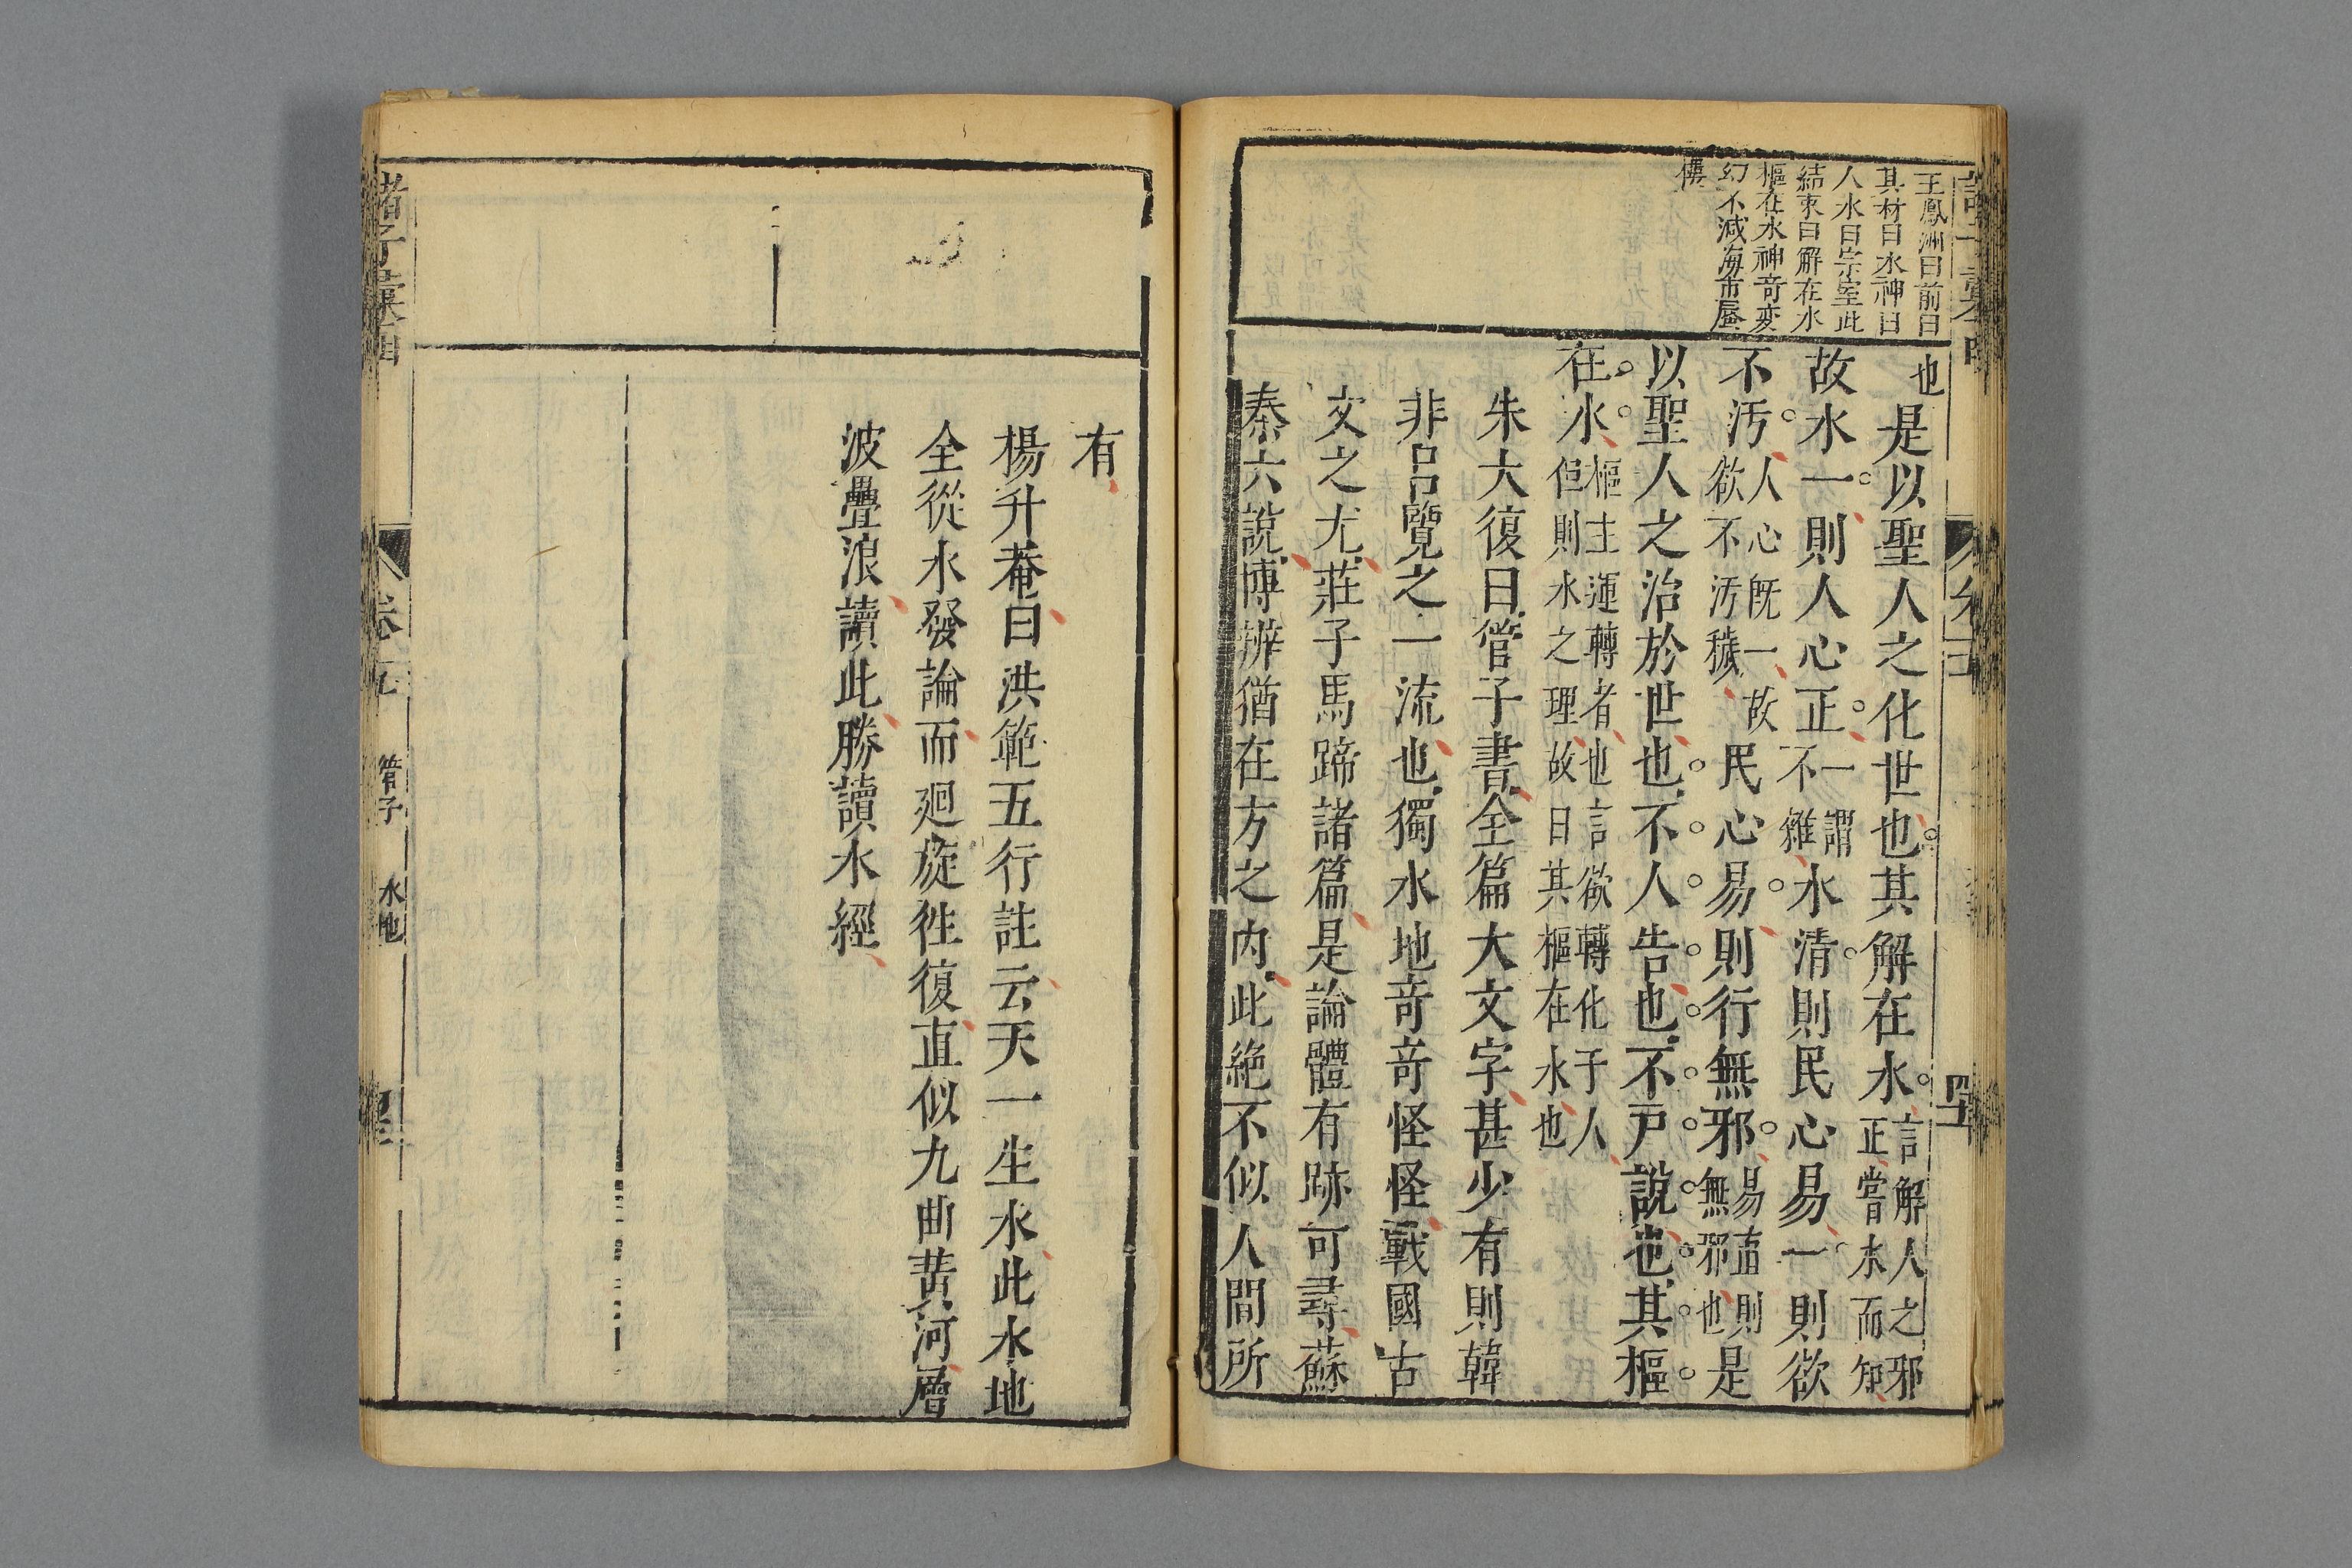 王鳳洲曰前曰
其材曰水神曰
人水曰宗室此
結束曰解在水
樞在水神竒変
幻不減海市蜃
樓
也是以聖人之化世也其解在水言解人之邪正當水而知
故水一則人心正一謂不雜水清則民心易一則欲
不汚人心旣一故欲不汚穢民心易則行無邪易直則無邪也是
以聖人之治於世也不人告也不戸說也其樞
在水樞主運轉者也言欲轉化于人但則水之理故曰其樞在水也
朱大復曰管子書全篇大文字甚少有則韓
非呂覽之一流也獨水地竒竒怪怪戰國古
文之尤莊子馬蹄諸篇是論體有跡可尋蘇
秦六說博辨猶在方之内此絶不似人間所
有
楊升菴曰洪範五行註云天一生水此水地
全從水發論而廻旋徃復直似九曲黃河層
波疊浪讀此勝讀水經
諸子彙函
卷五
管子
水地